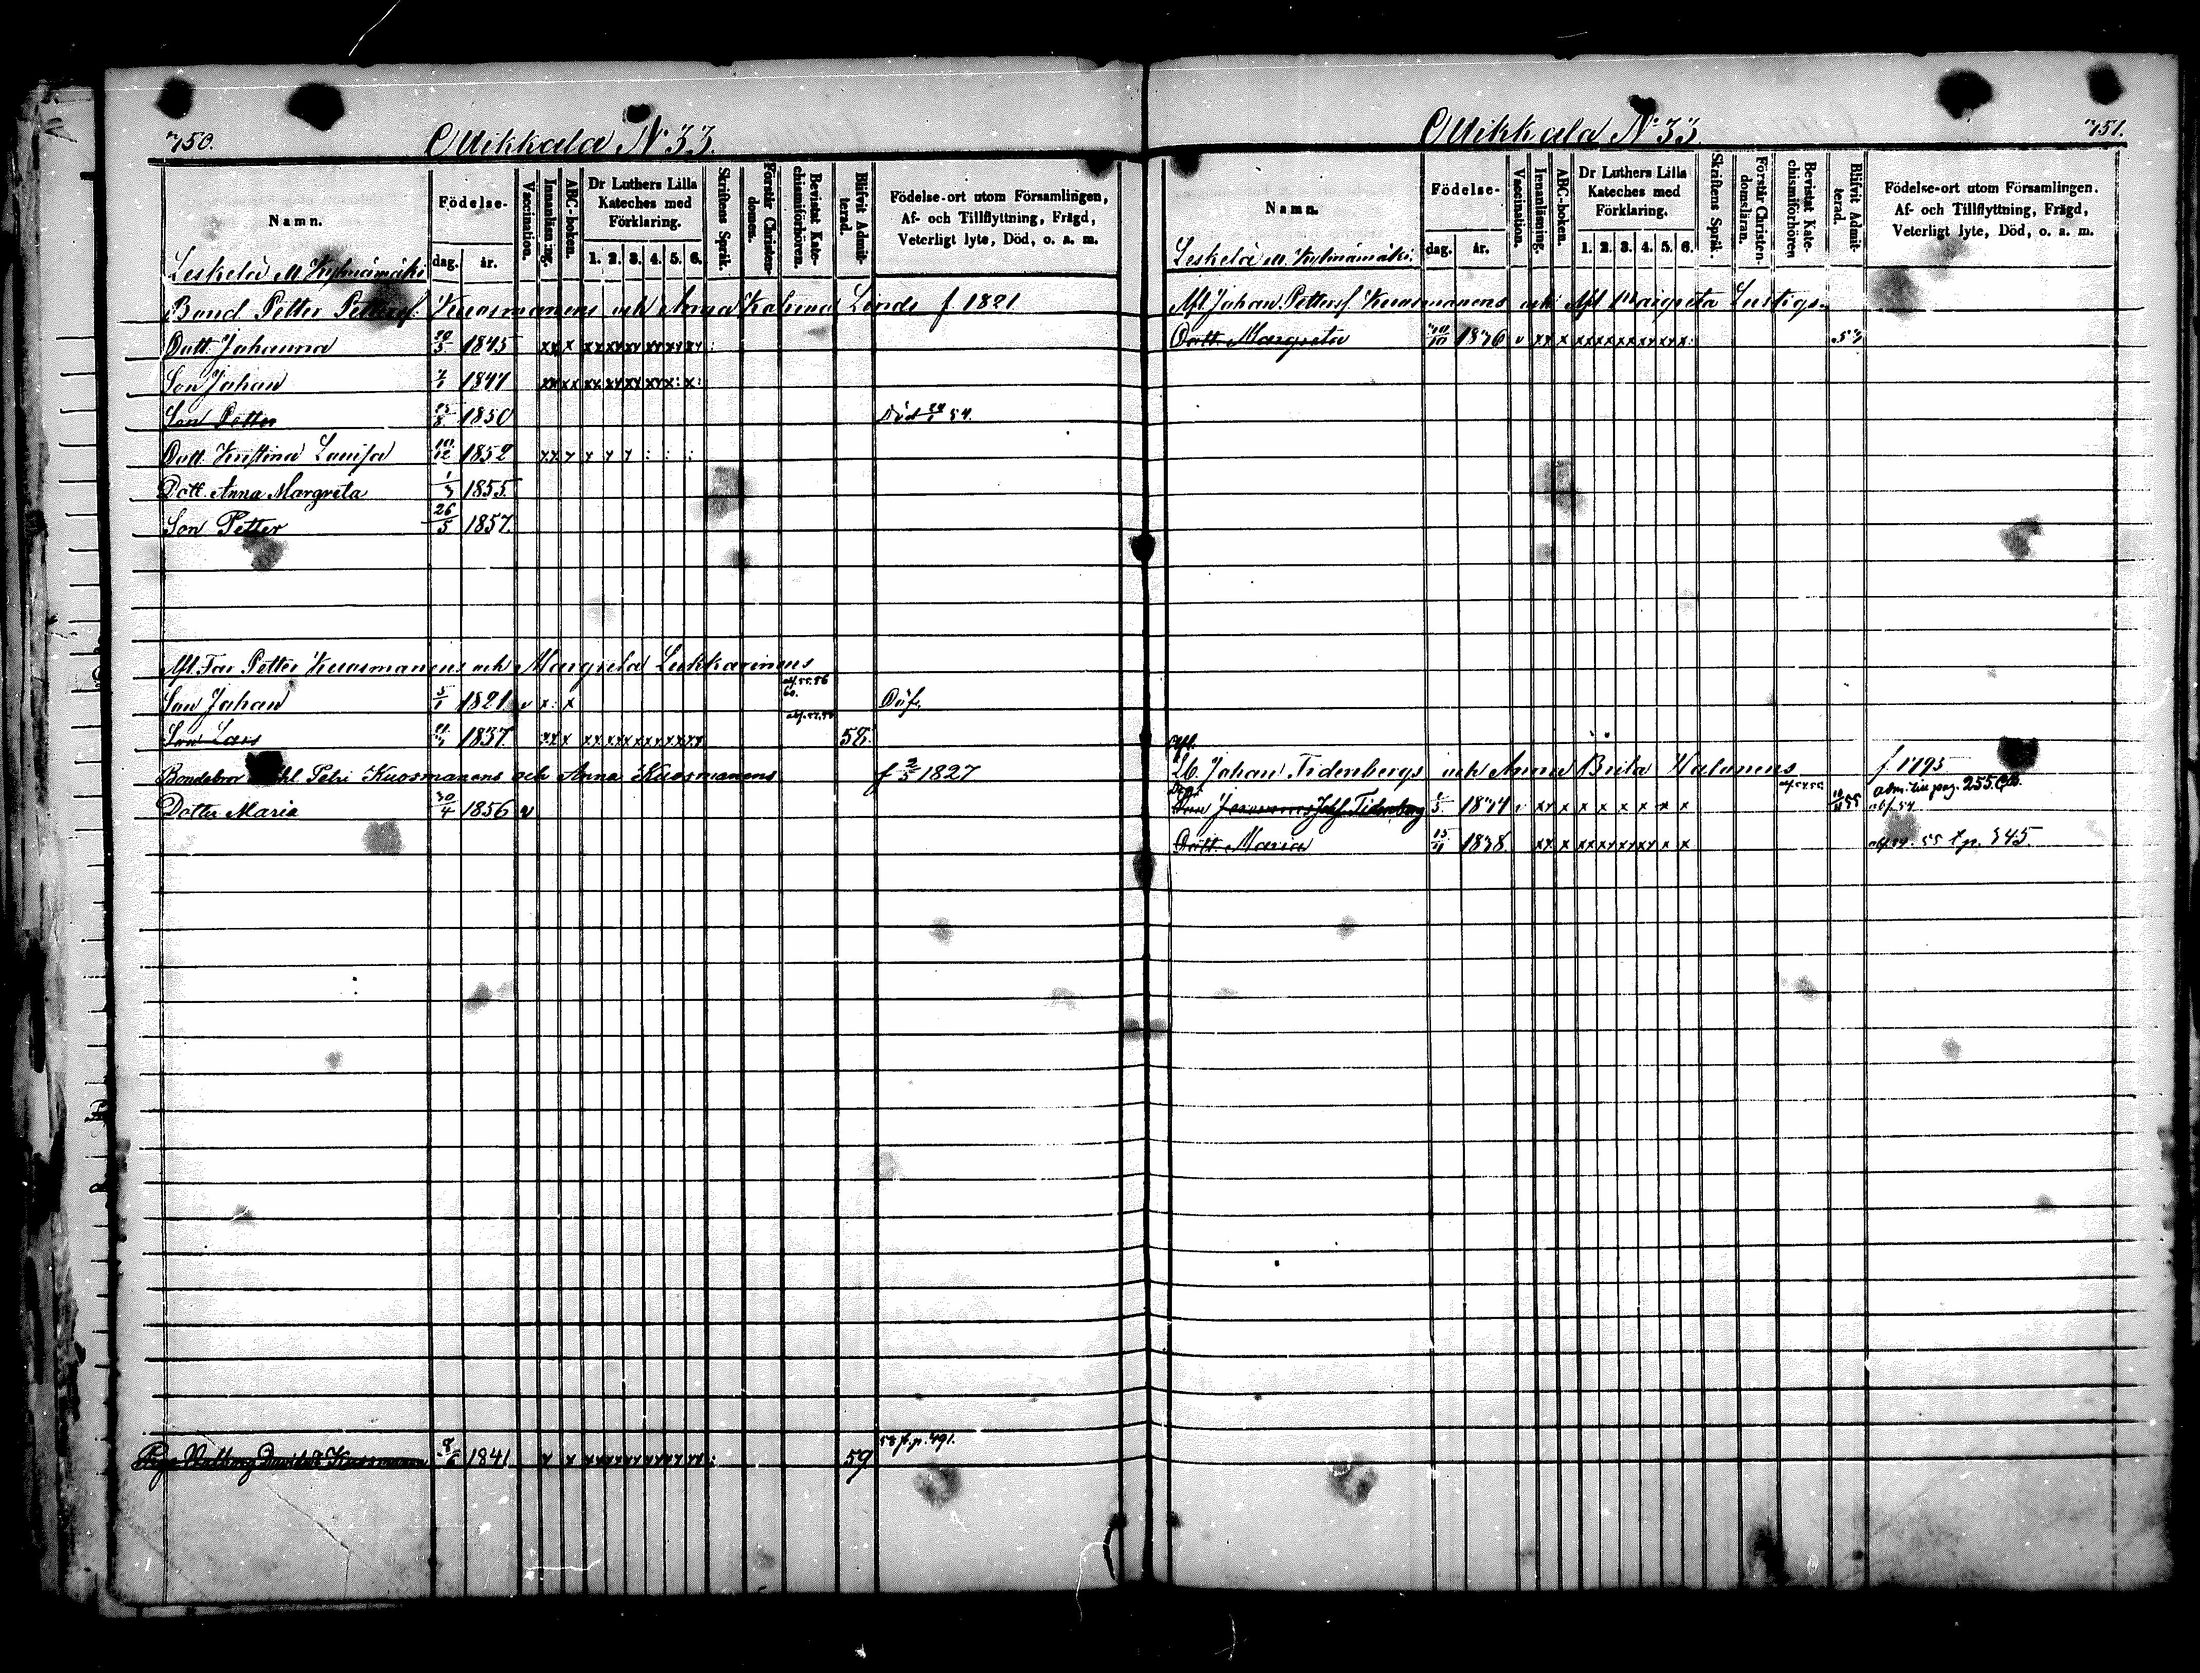 750.
Ollikkala N° 33.
Namn.
Födelse-
dag. år.
Vaccination.
Innanläsning.
ABC-boken.
Dr Luthers Lilla Kateches med Förklaring.
1. 2. 3. 4. 5. 6.
Skriftens Språk.
Förstår Christendomen.
Bevistat Katechismiförhören.
Blifvit Admitterad.
Födelse-ort utom Församlingen, Af- och Tillflyttning, Frägd, Veterligt lyte, Död, o. a. m.
Leskelä M. Kylmämäki
Bond Petter Pettersf. Kuosmanens och Anna Katrina Londs f. 1821
Dott. Johanna 20/3 1845 xx x xx xx xx xx xx xx :
Son Johan 1847 xx xx xx xx xx xx x: x:
Son Petter 1850 Död 54.
Dott. Kristina Lovisa 10/12 1852 xx x x x x : : :
Dott. Anna Margreta 1/3 1855.
Son Petter 26/5 1857.
Afl. Far Petter Kuosmanens och Margreta Lukkarinens
Son Johan 5/1 1821 v x: x abf. 55. 56 60. Döf.
Son Lars 1837. xx x xx xx xx xx xx xx 58.
Bondebror Petri Kuosmanens och Anna Kuosmanens f 2/5 1827
Dotter Maria 30/4 1856 v
Kuosmanen 8/6 1841 x x xx xx xx xx xx xx : 59 58 t. p. 491.
751.
Ollikkala N° 33.
Namn.
Födelse-
dag. år.
Vaccination.
Innanläsning.
ABC-boken.
Dr Luthers Lilla Kateches med Förklaring.
1. 2. 3. 4. 5. 6.
Skriftens Språk.
Förstår Christendomsläran.
Bevistat Katechismiförhören
Blifvit Admitterad.
Födelse-ort utom Församlingen. Af- och Tillflyttning, Frägd, Veterligt lyte, Död, o. a. m.
Leskelä M. Kylmämäki.
Afl. Johan Pettersf. Kuosmanens och Afl. Margreta Lustigs.
Dott. Margreta 1836 v xx x xx xx xx xx xx x: 53
Afl.
Lb. Johan Tidenbergs och Anna Brita Halonens f 1795
Tidenberg 1834 v xx x x x x x x x 55 adm. till pag. 255.
abf. 54
Dott. Maria 15/11 1838. xx x xx xx xx xx x x 55 t p. 345.